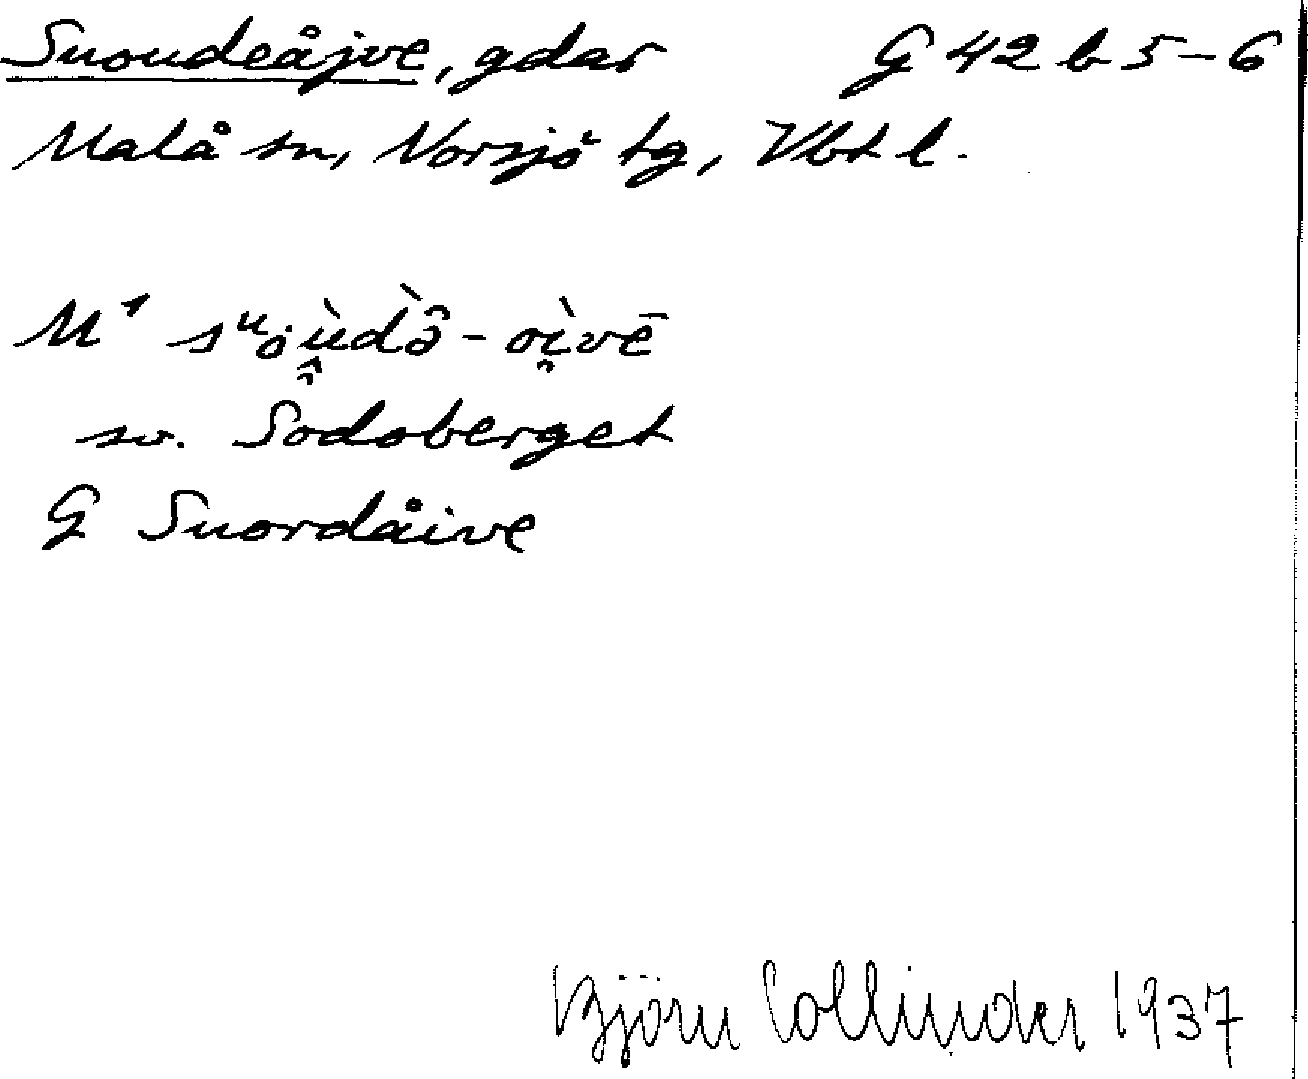 Suoudeåjve, gdar G 42 b 5-6
Malå sn, Norsjö tg, Vbt l.
M¹ sᵘȯù̯də̀̂-oì̯vē
sv. Sodoberget
G Suordåive
Björn Collinder 1937